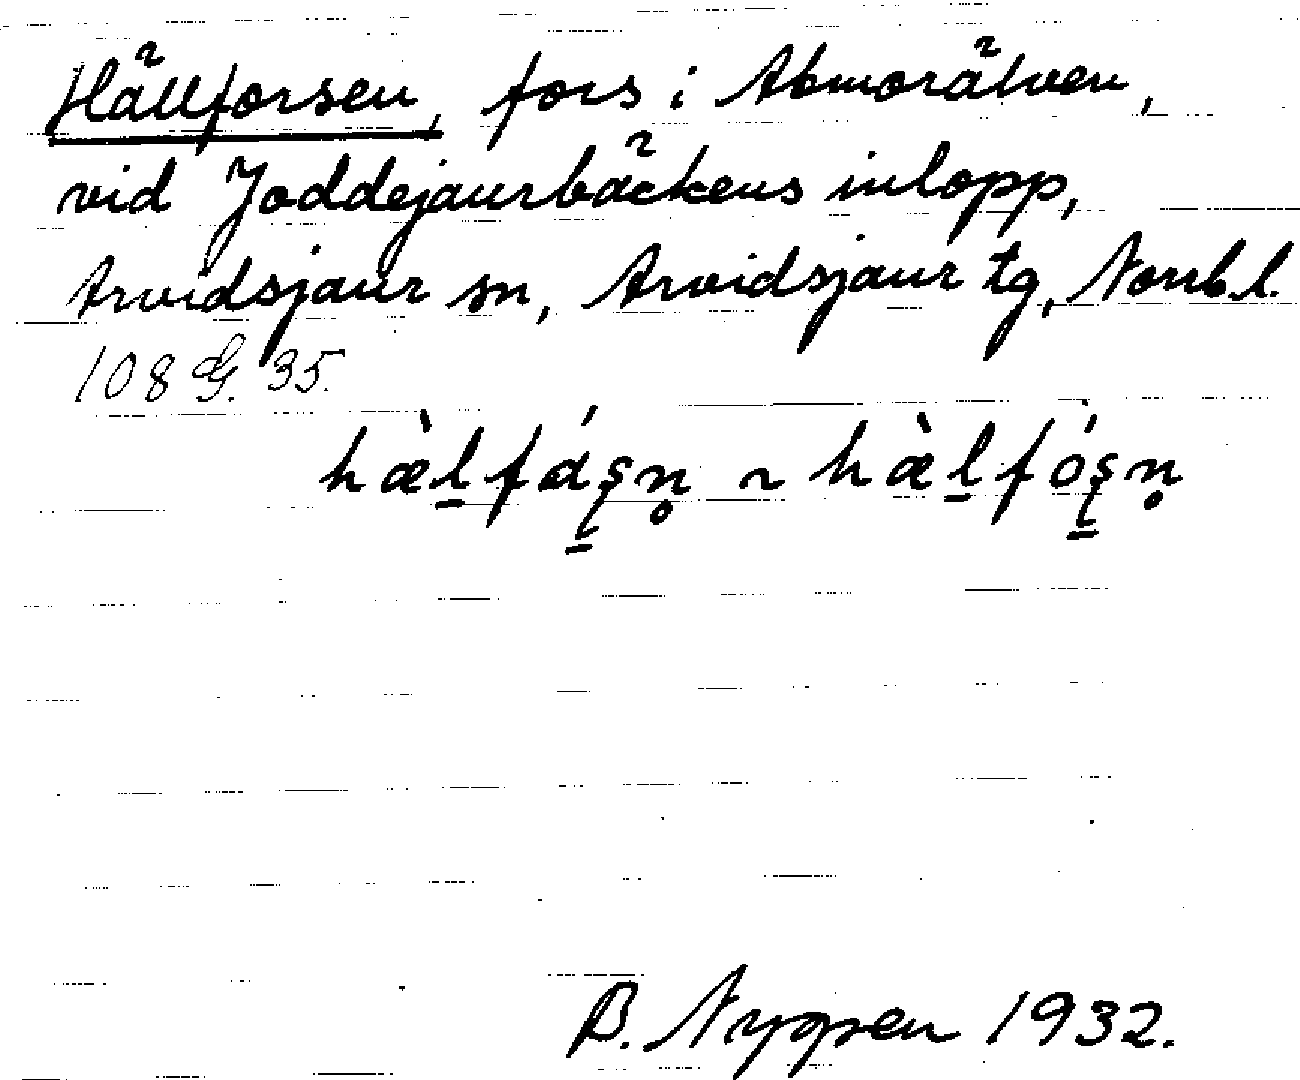 Hällforsen, fors i Abmorälven,
vid Joddejaurbäckens inlopp,
Arvidsjaur sn, Arvidsjaur tg, Norrb.l.
108 G. 35.
hæ̀l̠fáş̠n̥ ~ hæ̀l̠fóş̠n̥
B. 1932.